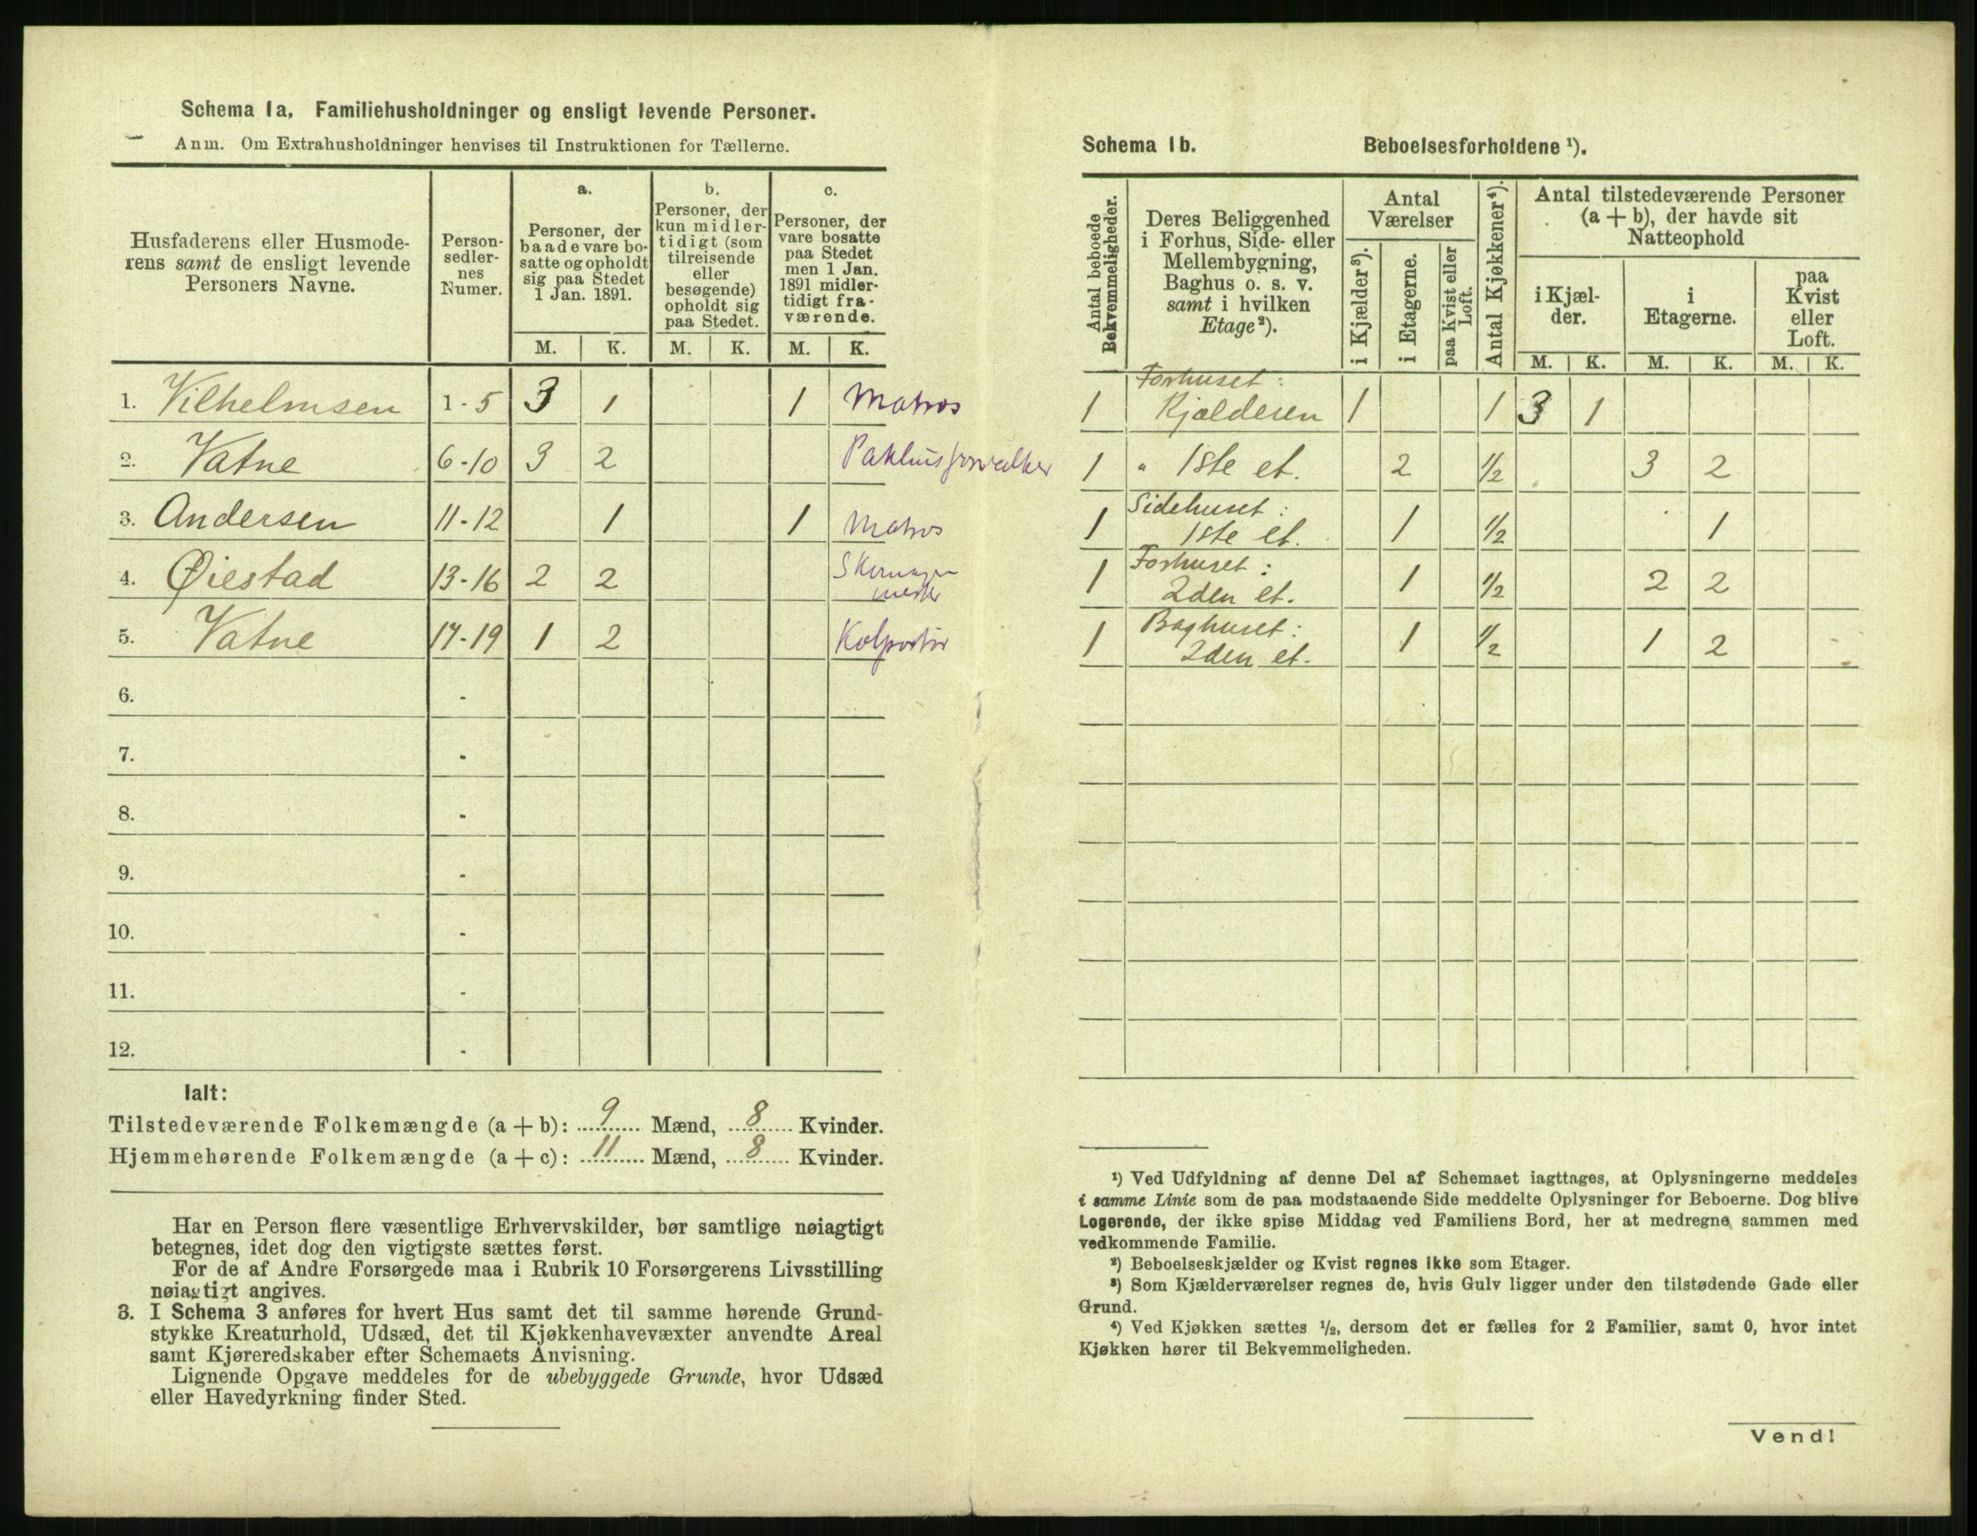 Schema 1a. Familiehusholdninger og ensligt levende Personer.
Anm. Om Extrahusholdninger henvises til Instruktionen for Tællerne.
Husfaderens eller Husmode-
rens samt de ensligt levende
Personers Navne.
Person-
sedler-
nes
Numer.
a.
Personer, der
baade vare bo-
satte og opholdt
sig paa Stedet
1 Jan. 1891.
b.
Personer, der
kun midler-
tidigt (som
tilreisende
eller
besøgende)
opholdt sig
paa Stedet.
c.
Personer, der
vare bosatte
paa Stedet
men 1 Jan.
1891 midler-
tidigt fra-
værende.
M. K. M. K. M. K.
1. Vilhelmsen 1-5 3 1 1 Matros
2. Vatne 6-10 3 2 Pakhusforvalter
3. Andersen 11-12 1 1 Matros
4. Øiestad 13-16 2 2
5. Vatne 17-19 1 2 Kolportør
6. -
7. -
8. -
9. -
10. -
11. -
12. -
Ialt:
Tilstedeværende Folkemængde (a + b): 9 Mænd, 8 Kvinder.
Hjemmehørende Folkemængde (a + c): 11 Mænd, 8 Kvinder.
Har en Person flere væsentlige Erhvervskilder, bør samtlige nøiagtigt
betegnes, idet dog den vigtigste sættes først.
For de af Andre Forsørgede maa i Rubrik 10 Forsørgerens Livsstilling
nøiagtigt angives.
3. I Schema 3 anføres for hvert Hus samt det til samme hørende Grund-
stykke Kreaturhold, Udsæd, det til Kjøkkenhavevæxter anvendte Areal
samt Kjøreredskaber efter Schemaets Anvisning.
Lignende Opgave meddeles for de ubebyggede Grunde, hvor Udsæd
eller Havedyrkning finder Sted.
Schema 1b. Beboelsesforholdene ¹).
Antal beboede
Bekvemmeligheder.
Deres Beliggenhed
i Forhus, Side- eller
Mellembygning,
Baghus o. s. v.
samt i hvilken
Etage²).
Antal
Værelser
i Kjælder³).
i Etagerne.
paa Kvist eller
Loft.
Antal Kjøkkener⁴).
Antal tilstedeværende Personer
(a + b), der havde sit
Natteophold
i Kjæl-
der.
i
Etagerne.
paa
Kvist
eller
Loft.
M. K. M. K. M. K.
1 Forhuset:
Kjælderen 1 1 3 1
1 " 1ste et. 2 ½ 3 2
1 Sidehuset:
1ste et. 1 ½ 1
1 Forhuset:
2den et. 1 ½ 2 2
1 Baghuset:
2den et. 1 ½ 1 2
¹) Ved Udfyldning af denne Del af Schemaet iagttages, at Oplysningerne meddeles
i samme Linie som de paa modstaaende Side meddelte Oplysninger for Beboerne. Dog blive
Logerende, der ikke spise Middag ved Familiens Bord, her at medregne sammen med
vedkommende Familie.
²) Beboelseskjælder og Kvist regnes ikke som Etager.
³) Som Kjælderværelser regnes de, hvis Gulv ligger under den tilstødende Gade eller
Grund.
⁴) Ved Kjøkken sættes ½, dersom det er fælles for 2 Familier, samt 0, hvor intet
Kjøkken hører til Bekvemmeligheden.
Vend!